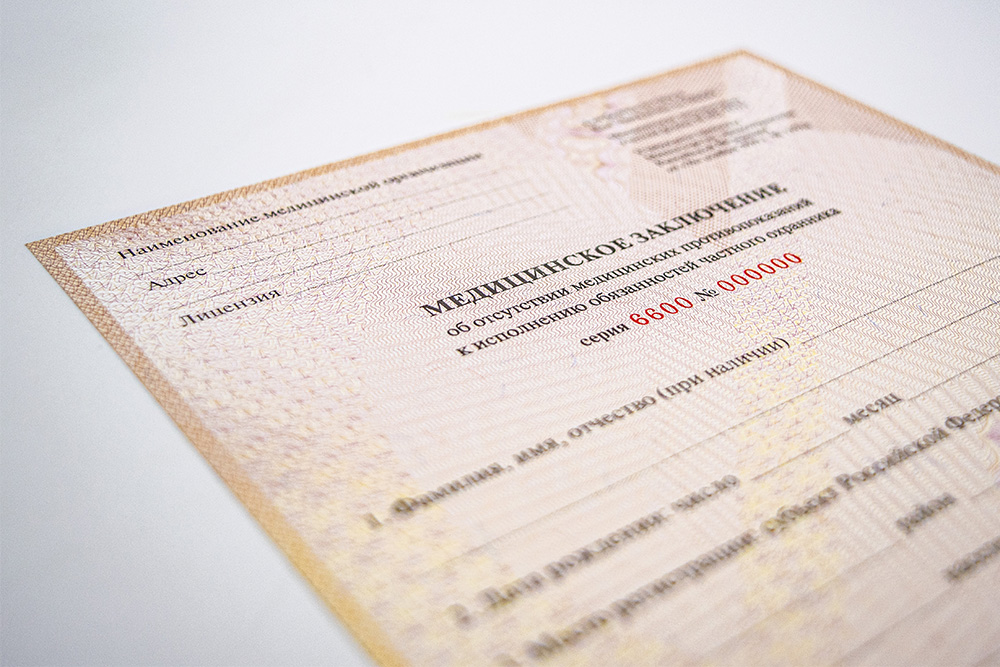 Наименование медицинской организации
Адрес
Лицензия
МЕДИЦИНСКОЕ ЗАКЛЮЧЕНИЕ
об отсутствии медицинских противопоказаний
к исполнению обязанностей частного охранника
серия 6600 № 000000
1. Фамилия, имя, отчество (при наличии)
2. Дата рождения: число месяц
Место регистрации: субъект Российской Федер
район